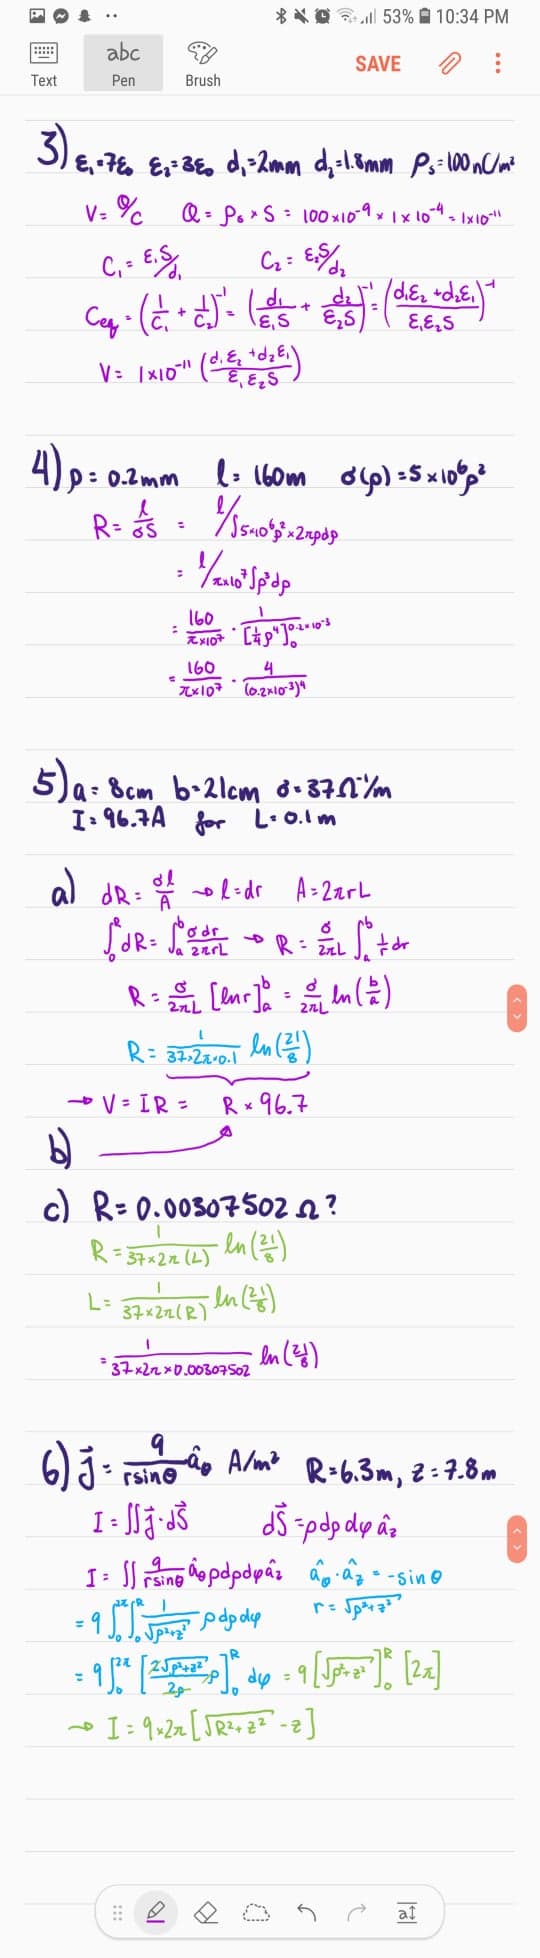 53% 10:34 PM
Text
abc
Pen
Brush
SAVE
3) ε₁=7ε₀ ε₂=3ε₀ d₁=2mm d₂=1.8mm ρₛ=100nC/m²
V= Q/C Q= ρₛ×S= 100×10⁻⁹ × 1×10⁻⁴ = 1×10⁻¹¹
C₁= ε₁S/d₁ C₂= ε₂S/d₂
Ceq = (1/C₁ + 1/C₂)⁻¹ = (d₁/ε₁S + d₂/ε₂S)⁻¹ = (d₁ε₂+d₂ε₁/ε₁ε₂S)⁻¹
V= 1×10⁻¹¹ (d₁ε₂+d₂ε₁/ε₁ε₂S)
4) ρ= 0.2mm l= 160m σ(ρ)=5×10⁶ρ²
R= l/σS = l/∫5×10⁶ρ²×2πρdρ
= l/π×10⁷∫ρ³dρ
= 160/π×10⁷ · 1/[¼ρ⁴]₀^0.2×10⁻³
= 160/π×10⁷ · 4/(0.2×10⁻³)⁴
5) a= 8cm b=21cm σ=37Ω⁻¹/m
I= 96.7A for L= 0.1m
a) dR= σl/A → l=dr A=2πrL
∫₀ᴿdR= ∫ₐᵇ σdr/2πrL → R= σ/2πL ∫ₐᵇ 1/r dr
R= σ/2πL [lnr]ₐᵇ = σ/2πL ln(b/a)
R= 1/37×2π×0.1 ln(21/8)
→ V=IR= R×96.7
b)
c) R=0.00307502Ω?
R= 1/37×2π(L) ln(21/8)
L= 1/37×2π(R) ln(21/8)
= 1/37×2π×0.00307502 ln(21/8)
6) j⃗= 9/rsinθ âθ A/m² R=6.3m, z=7.8m
I= ∬j⃗·dS⃗ dS⃗=ρdρdφâz
I= ∬ 9/rsinθ âθρdρdφâz âθ·âz = -sinθ
r=√ρ²+z²
= 9∫₀²π∫₀ᴿ 1/√ρ²+z² ρdρdφ
= 9∫₀²π [2√ρ²+z²/2ρ ρ]₀ᴿ dφ = 9[√ρ²+z²]₀ᴿ [2π]
→ I= 9×2π[√R²+z² -z]